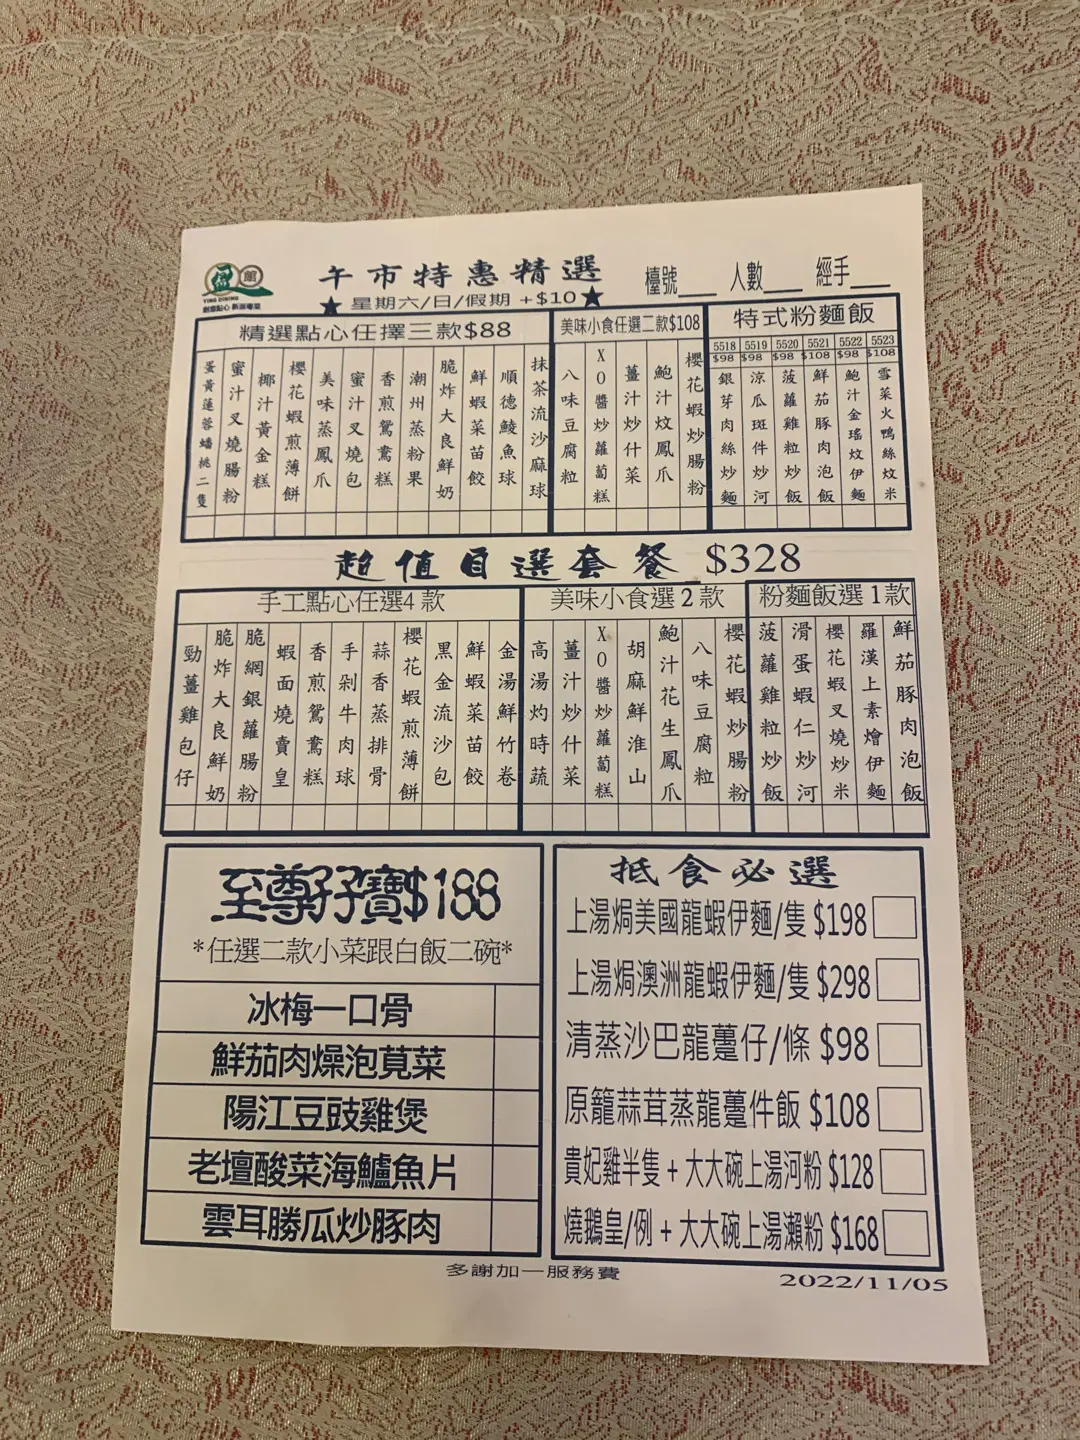 盈館
YING DINING
創意點心 新派粵菜
午市特惠精選
檯號___ 人數___ 經手___
★星期六/日/假期 +$10★
精選點心任擇三款$88
蛋黃蓮蓉蟠桃二隻
蜜汁叉燒腸粉
椰汁黃金糕
櫻花蝦煎薄餅
美味蒸鳳爪
蜜汁叉燒包
香煎鴛鴦糕
潮州蒸粉果
脆炸大良鮮奶
鮮蝦菜苗餃
順德鯪魚球
抹茶流沙麻球
美味小食任選二款$108
八味豆腐粒
XO醬炒蘿蔔糕
薑汁炒什菜
鮑汁炆鳳爪
櫻花蝦炒腸粉
特式粉麵飯
5518 5519 5520 5521 5522 5523
$98 $98 $98 $108 $98 $108
銀芽肉絲炒麵
涼瓜斑件炒河
菠蘿雞粒炒飯
鮮茄豚肉泡飯
鮑汁金瑤炆伊麵
雪菜火鴨絲炆米
超值自選套餐 $328
手工點心任選4款
勁薑雞包仔
脆炸大良鮮奶
脆網銀蘿腸粉
蝦面燒賣皇
香煎鴛鴦糕
手剁牛肉球
蒜香蒸排骨
櫻花蝦煎薄餅
黑金流沙包
鮮蝦菜苗餃
金湯鮮竹卷
美味小食選2款
高湯灼時蔬
薑汁炒什菜
XO醬炒蘿蔔糕
胡麻鮮淮山
鮑汁花生鳳爪
八味豆腐粒
櫻花蝦炒腸粉
粉麵飯選1款
菠蘿雞粒炒飯
滑蛋蝦仁炒河
櫻花蝦叉燒炒米
羅漢上素燴伊麵
鮮茄豚肉泡飯
至尊孖寶$188
*任選二款小菜跟白飯二碗*
冰梅一口骨
鮮茄肉燥泡莧菜
陽江豆豉雞煲
老壇酸菜海鱸魚片
雲耳勝瓜炒豚肉
抵食必選
上湯焗美國龍蝦伊麵/隻 $198
上湯焗澳洲龍蝦伊麵/隻 $298
清蒸沙巴龍躉仔/條 $98
原籠蒜茸蒸龍躉件飯 $108
貴妃雞半隻 + 大大碗上湯河粉 $128
燒鵝皇/例 + 大大碗上湯瀨粉 $168
多謝加一服務費
2022/11/05